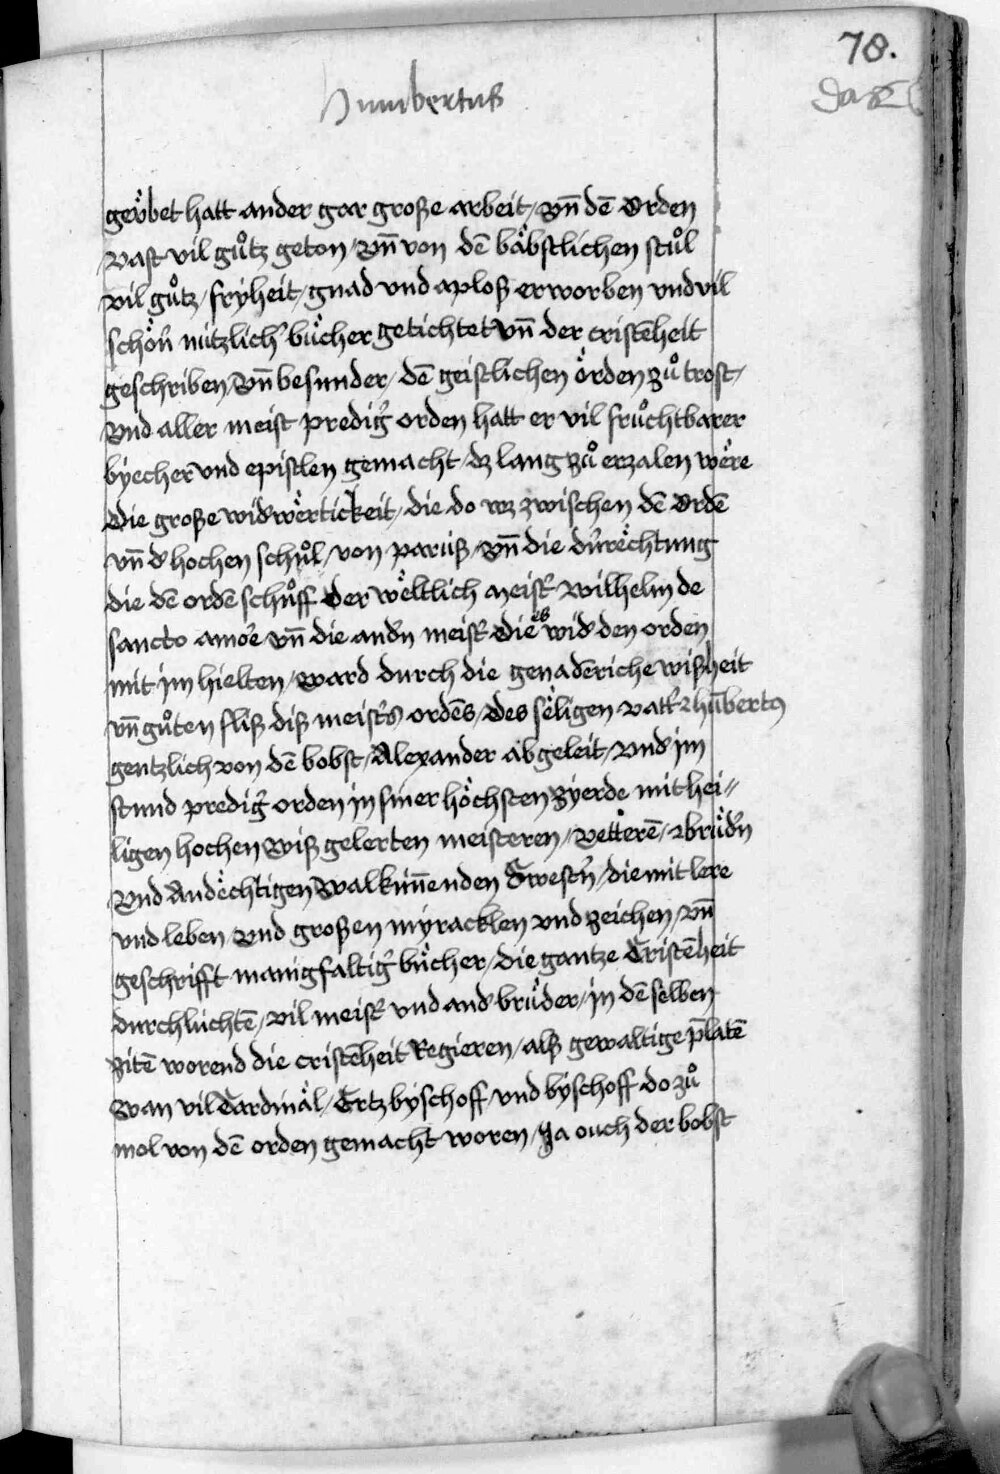 78.
Humbertuß
geöbet hatt ander gar große arbeit / vn̄ dē Orden
vast vil gůtz geton / vn̄ von dē bäbstlichen stůl
vil gůtz / fryheit / gnad vnd aploß erworben vnd vil
schön̄ nützlich' bücher getichtet vn̄ der cristēheit
geschriben / vn̄ besunder / dē geistlichen örden zů trost /
Vnd aller meist predig' orden hatt er vil früchtbarer
byecher vnd epistlen gemacht / dz lang zů erzalen wëre
Die große widwërtickeit / die do wz zwischen dē Ordē
vn̄ d' hochen schůl / von pariiß / vn̄ die durëchtung
die dē ordē schůff der wëltlich meist' wilhelm de
sancto amore vn̄ die andn̄ meist' die es wid' den orden
mit im hielten / ward durch die genadēriche wißheit
vn̄ gůten fliß diß meist's ordēs / des sëligen vatt's hūbertꝰ
gentzlich von dē bobst / Alexander abgeleit / vnd im
stund predig' orden in siner höchsten zyerde mit hei„
ligen hochen wiß gelerten meisteren / vetterē / brüdn̄
Vnd Andëchtigen walkūnenden Swestn̄ / die mit lere
vnd leben vnd großen myracklen vnd zeichen / vn̄
geschrifft manigfaltig' bücher / die gantze Cristēheit
durchluchtē / vil meist' vnd and' brüder / in dē selben
zitē worend die cristēheit Regieren / alß gewaltige p̄latē
Wan vil Cardinäl / Ertzbyschoff / vnd byschoff do zů
mol von dē orden gemacht woren / Ja ouch der bobst